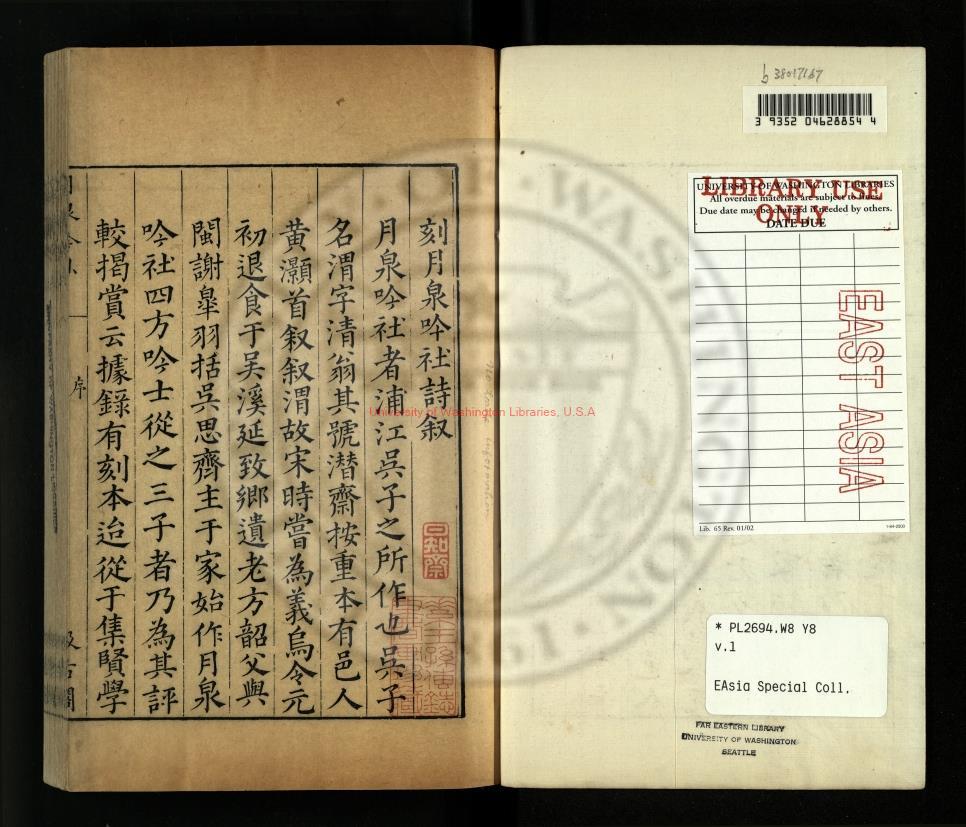 刻月泉吟社詩叙
月泉吟社者浦江吳子之所作也吳子
名渭字清翁其號潛齋按重本有邑人
黄灝首叙叙渭故宋時嘗為義烏令元
初退食于吴溪延致鄉遺老方韶父與
閩謝臯羽括吳思齊主于家始作月泉
吟社四方吟士從之三子者乃為其評
較揭賞云據錄有刻本迨從于集賢學
序
日知齋
b 38017167
3 9352 04628854 4
UNIVERSITY OF WASHINGTON LIBRARIES
All overdue materials are subject to fines.
Due date may be changed if needed by others.
DATE DUE
LIBRARY USE
ONLY
EAST ASIA
Lib. 65 Rev. 01/02
* PL2694.W8 Y8
v.1
EAsia Special Coll.
FAR EASTERN LIBRARY
UNIVERSITY OF WASHINGTON
SEATTLE
University of Washington Libraries, U.S.A